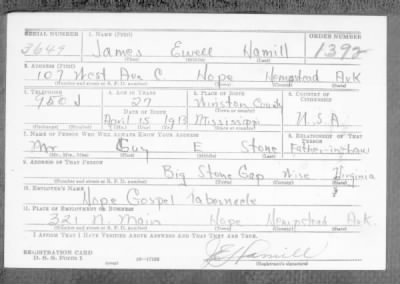 SERIAL NUMBER 1. NAME (Print) ORDER NUMBER
2649 James Ewell Hamill 1392
(First) (Middle) (Last)
2. ADDRESS (Print)
107 West Ave C. Hope Hempstead Ark
(Number and street or R. F. D. number) (Town) (County) (State)
3. TELEPHONE 4. AGE IN YEARS 5. PLACE OF BIRTH 6. COUNTRY OF CITIZENSHIP
750 J 27 Winston County
DATE OF BIRTH (Town or county)
April 15 1913 Mississippi U.S.A.
(Exchange) (Number) (Mo.) (Day) (Yr.) (State or country)
7. NAME OF PERSON WHO WILL ALWAYS KNOW YOUR ADDRESS 8. RELATIONSHIP OF THAT PERSON
Mr Guy E Stone Father-in-law
(Mr., Mrs., Miss) (First) (Middle) (Last)
9. ADDRESS OF THAT PERSON
Big Stone Gap Wise Virginia
(Number and street or R. F. D. number) (Town) (County) (State)
10. EMPLOYER'S NAME
Hope Gospel Tabernacle
11. PLACE OF EMPLOYMENT OR BUSINESS
321 N. Main Hope Hempstead Ark.
(Number and street or R. F. D. number) (Town) (County) (State)
I AFFIRM THAT I HAVE VERIFIED ABOVE ANSWERS AND THAT THEY ARE TRUE.
REGISTRATION CARD
D. S. S. FORM 1 J E Hamill
(Registrant's signature)